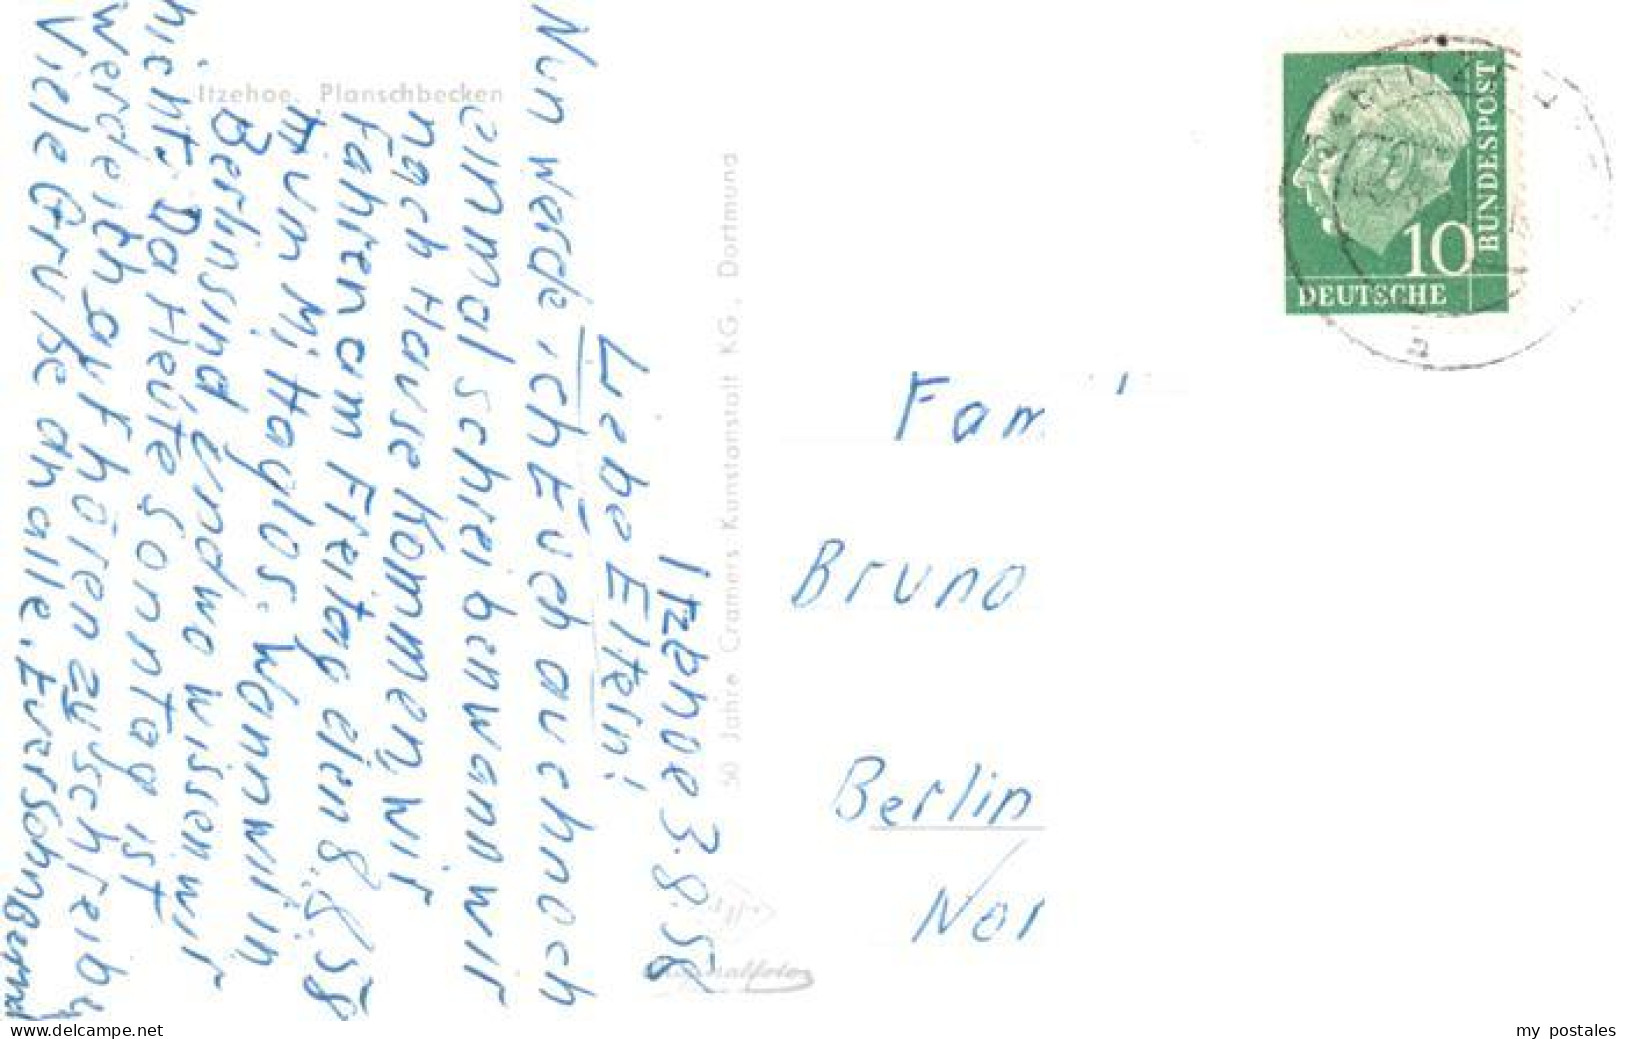 Itzehoe, Planschbecken
Itzehoe 3.8.58
Liebe Eltern!
Nun werde ich Euch auch noch
einmal schreiben wann wir
nach Hause kommen, wir
fahren am Freitag den 8.8.58
um Mittag los. Wann wir in
Berlin sind und wo wissen wir
nicht. Da Heute Sonntag ist
werde ich auf hören zu schreiben
Viele Grüße an alle. Euer Sohn Bernd
50 Jahre Cramers Kunstanstalt KG, Dortmund
DEUTSCHE
BUNDESPOST
10
Fam
Bruno
Berlin
www.delcampe.net
my postales